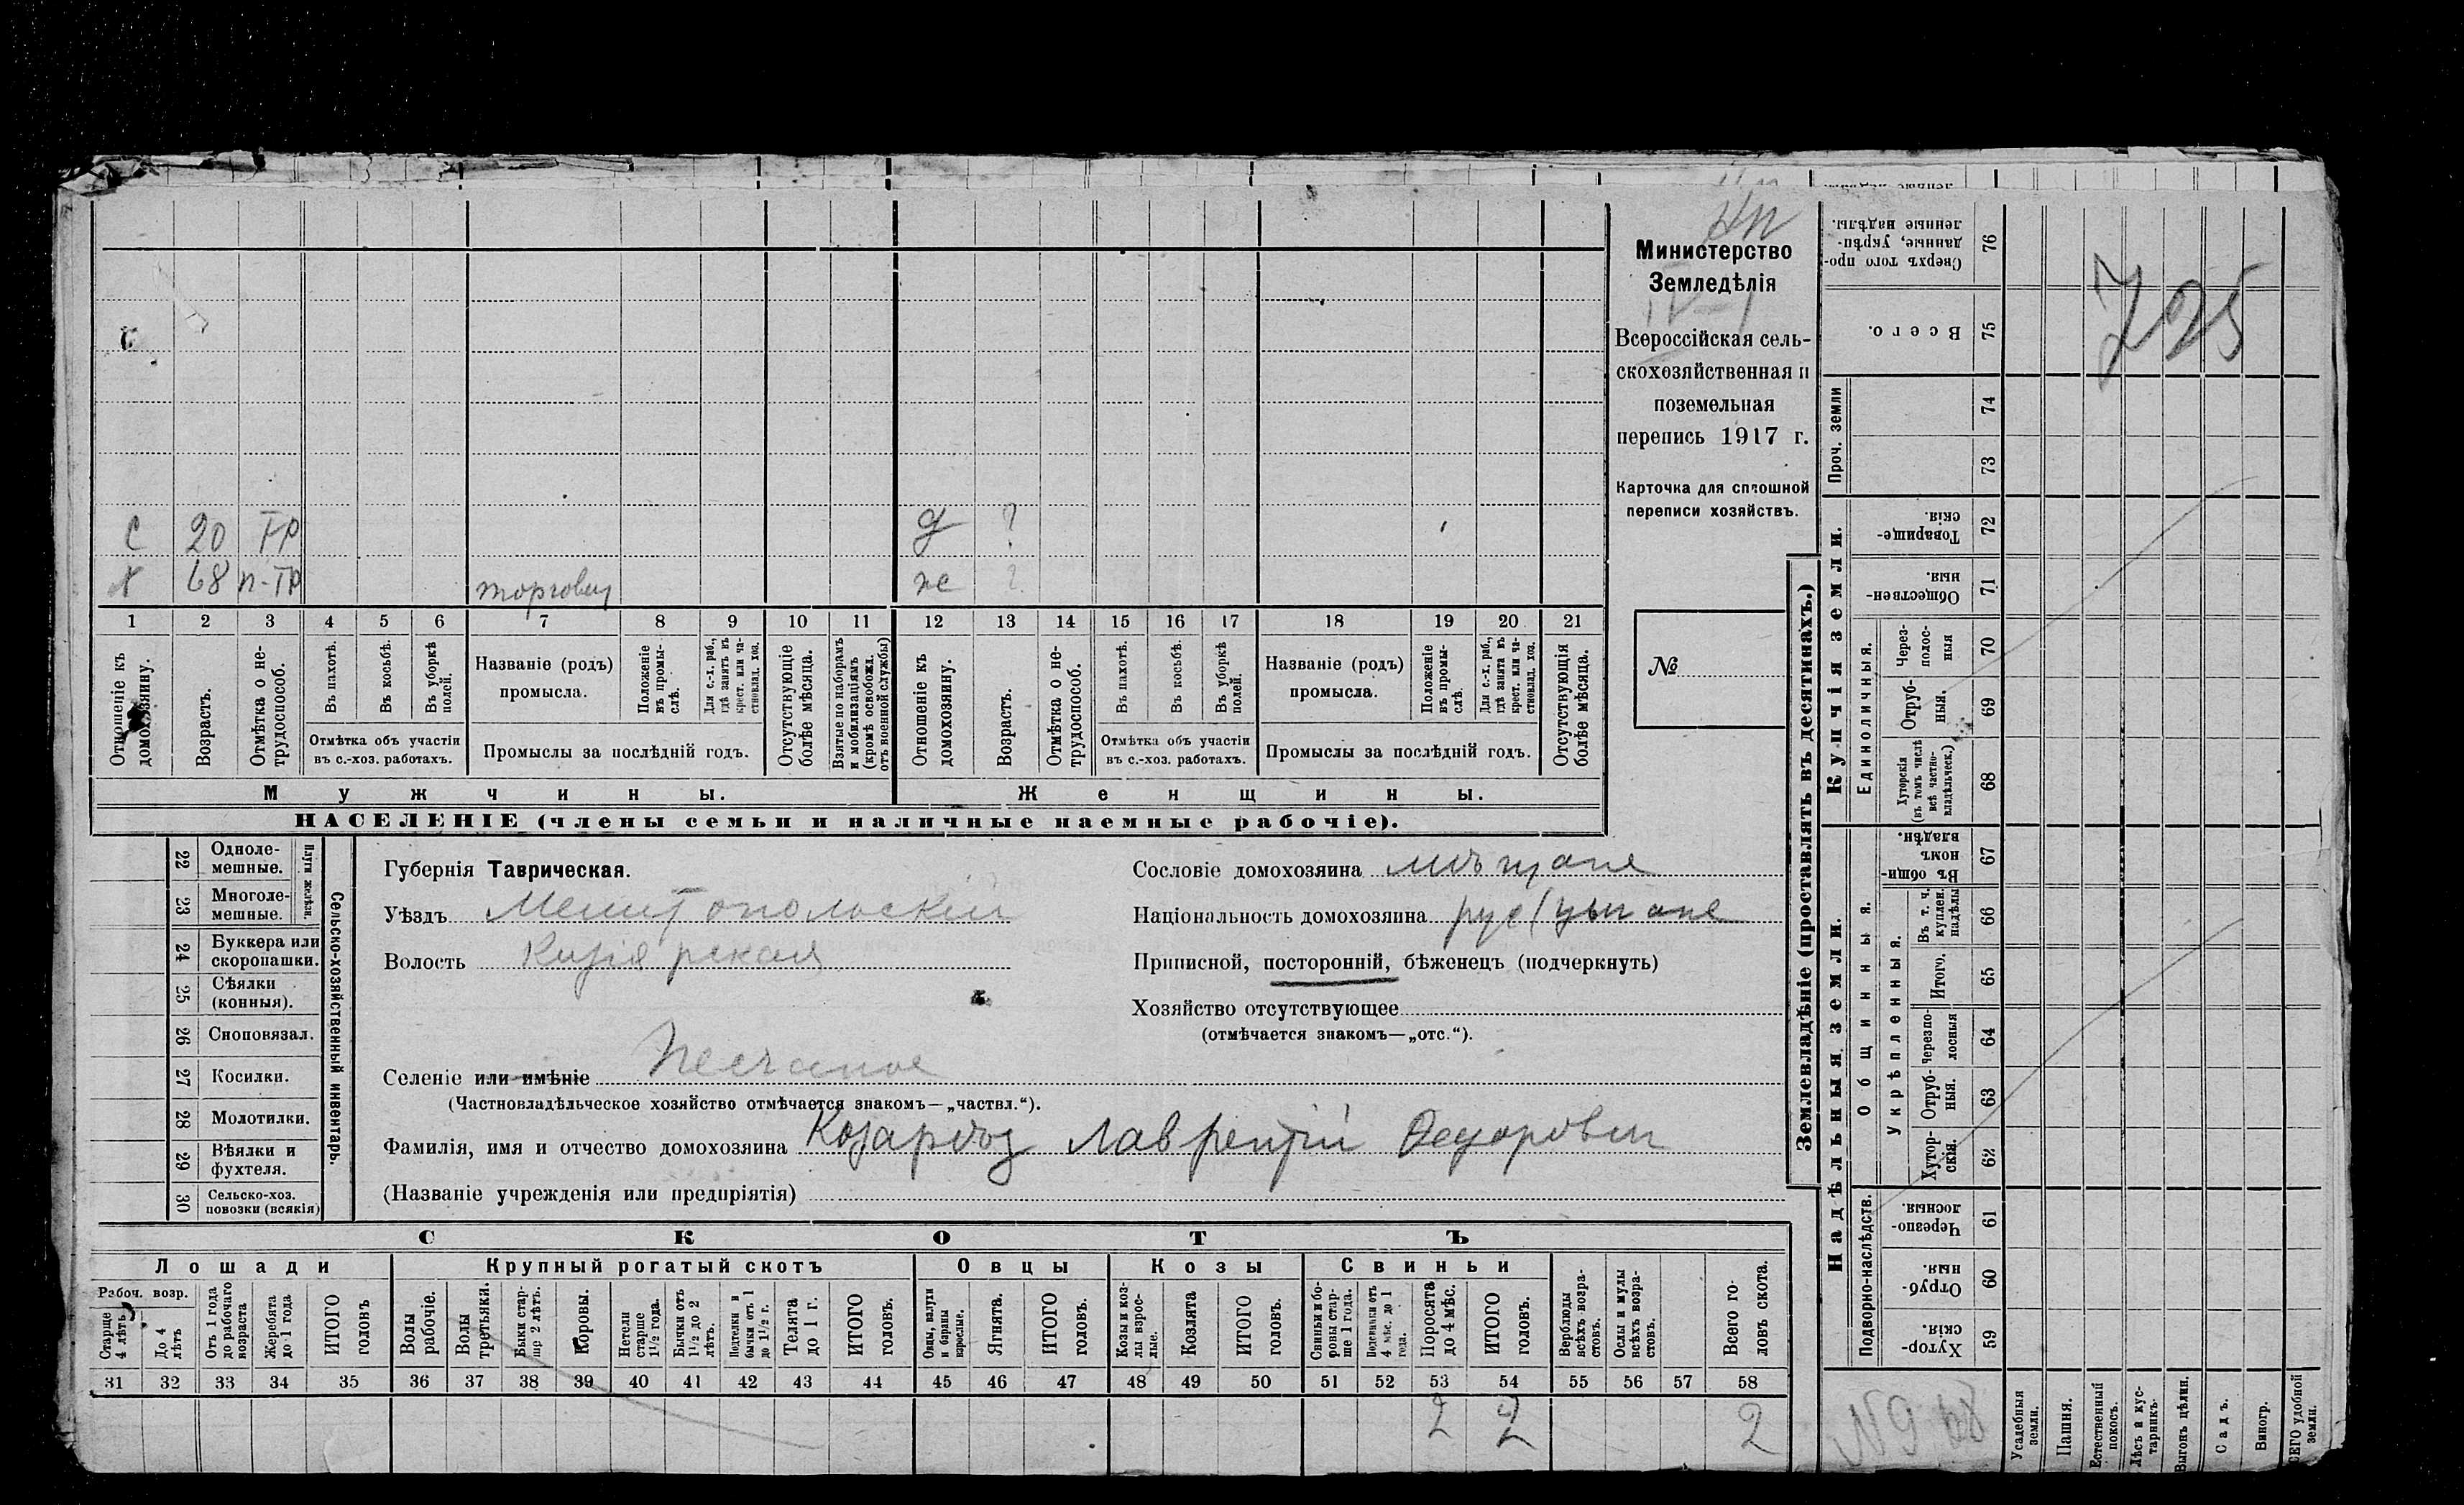 Министерство
Земледѣлія
Всероссійская сель-
скохозяйственная и
поземельная
перепись 1917 г.
Карточка для сплошной
переписи хозяйствъ.
№
С 20 тр
х 68 п-тр торговец
д ?
ж ?
1 2 3 4 5 6 7 8 9 10 11 12 13 14 15 16 17 18 19 20 21
Отношеніе къ домохозяину.
Возрастъ.
Отмѣтка о не-трудоспособ.
Въ пахотѣ.
Въ косьбѣ.
Въ уборкѣ полей.
Отмѣтка объ участіи
въ с.-хоз. работахъ.
Названіе (родъ)
промысла.
Положеніе въ промы-слѣ.
Для с.-х. раб., гдѣ занятъ въ крест. или ча-стновлад. хоз.
Промыслы за послѣдній годъ.
Отсутствующіе болѣе мѣсяца.
Взятые по наборамъ и мобилизаціямъ (кромѣ освобожд. отъ военной службы)
Отношеніе къ домохозяину.
Возрастъ.
Отмѣтка о не-трудоспособ.
Въ пахотѣ.
Въ косьбѣ.
Въ уборкѣ полей.
Отмѣтка объ участіи
въ с.-хоз. работахъ.
Названіе (родъ)
промысла.
Положеніе въ промы-слѣ.
Для с.-х. раб., гдѣ занята въ крест. или ча-стновлад. хоз.
Промыслы за послѣдній годъ.
Отсутствующія болѣе мѣсяца.
Мужчины.
Женщины.
НАСЕЛЕНІЕ (члены семьи и наличные наемные рабочіе).
22 Одноле-мешные.
23 Многоле-мешные.
Плуги желѣзн.
24 Буккера или скоропашки.
25 Сѣялки (конныя).
26 Сноповязал.
27 Косилки.
28 Молотилки.
29 Вѣялки и фухтеля.
30 Сельско-хоз. повозки (всякія)
Сельско-хозяйственный инвентарь.
Губернія Таврическая.
Уѣздъ Мелитопольскій
Волость Кизіярская
Селеніе или имѣніе Песчаное
(Частновладѣльческое хозяйство отмѣчается знакомъ—„частвл.“).
Фамилія, имя и отчество домохозяина Лаврентій Федорович
(Названіе учрежденія или предпріятія)
Сословіе домохозяина мѣщане
Національность домохозяина рус (цыгане
Приписной, посторонній, бѣженецъ (подчеркнуть)
Хозяйство отсутствующее
(отмѣчается знакомъ—„отс.“).
СКОТЪ
Лошади
Крупный рогатый скотъ
Овцы
Козы
Свиньи
Рабоч. возр.
Старше 4 лѣтъ
До 4 лѣтъ
Отъ 1 года до рабочаго возраста
Жеребята до 1 года
ИТОГО головъ
Волы рабочіе.
Волы третьяки.
Быки стар-ше 2 лѣтъ.
Коровы.
Нетели старше 1½ года.
Бычки отъ 1½ до 2 лѣтъ.
Подтелки и бычки отъ 1 до 1½ г.
Телята до 1 г.
ИТОГО головъ.
Овцы, валухи и бараны взрослые.
Ягнята.
ИТОГО головъ.
Козы и коз-лы взрос-лые.
Козлята
ИТОГО головъ.
Свиньи и бо-ровы стар-ше 1 года.
Подсвинки отъ 4 мѣс. до 1 года.
Поросята до 4 мѣс.
ИТОГО головъ.
Верблюды всѣхъ возра-стовъ.
Ослы и мулы всѣхъ возра-стовъ.
Всего го-ловъ скота.
31 32 33 34 35 36 37 38 39 40 41 42 43 44 45 46 47 48 49 50 51 52 53 54 55 56 57 58
2 2 2
Землевладѣніе (проставлять въ десятинахъ.)
795
Сверхъ того про-данные, укрѣп-ленные надѣлы. 76
Всего. 75
Проч. земли 74
73
Купчія земли.
Товарище-скія. 72
Обществен-ныя. 71
Единоличныя.
Через-полос-ныя 70
Отруб-ныя. 69
Хуторскія (въ томъ числѣ всѣ частно-владѣльческ.) 68
Надѣльныя земли.
Общинныя.
Въ общи-номъ владѣн. 67
Укрѣпленныя.
Въ т. ч. куплен. надѣлы 66
Итого. 65
Черезпо-лосныя 64
Отруб-ныя. 63
Хутор-скія. 62
Подворно-наслѣдств.
Черезпо-лосныя. 61
Отруб-ныя. 60
Хутор-скія. 59
Усадебныя земли.
Пашня.
Естественный покосъ.
Лѣсъ и кус-тарникъ.
Выгонъ цѣлин.
Садъ.
Виногр.
ВСЕГО удобной земли.